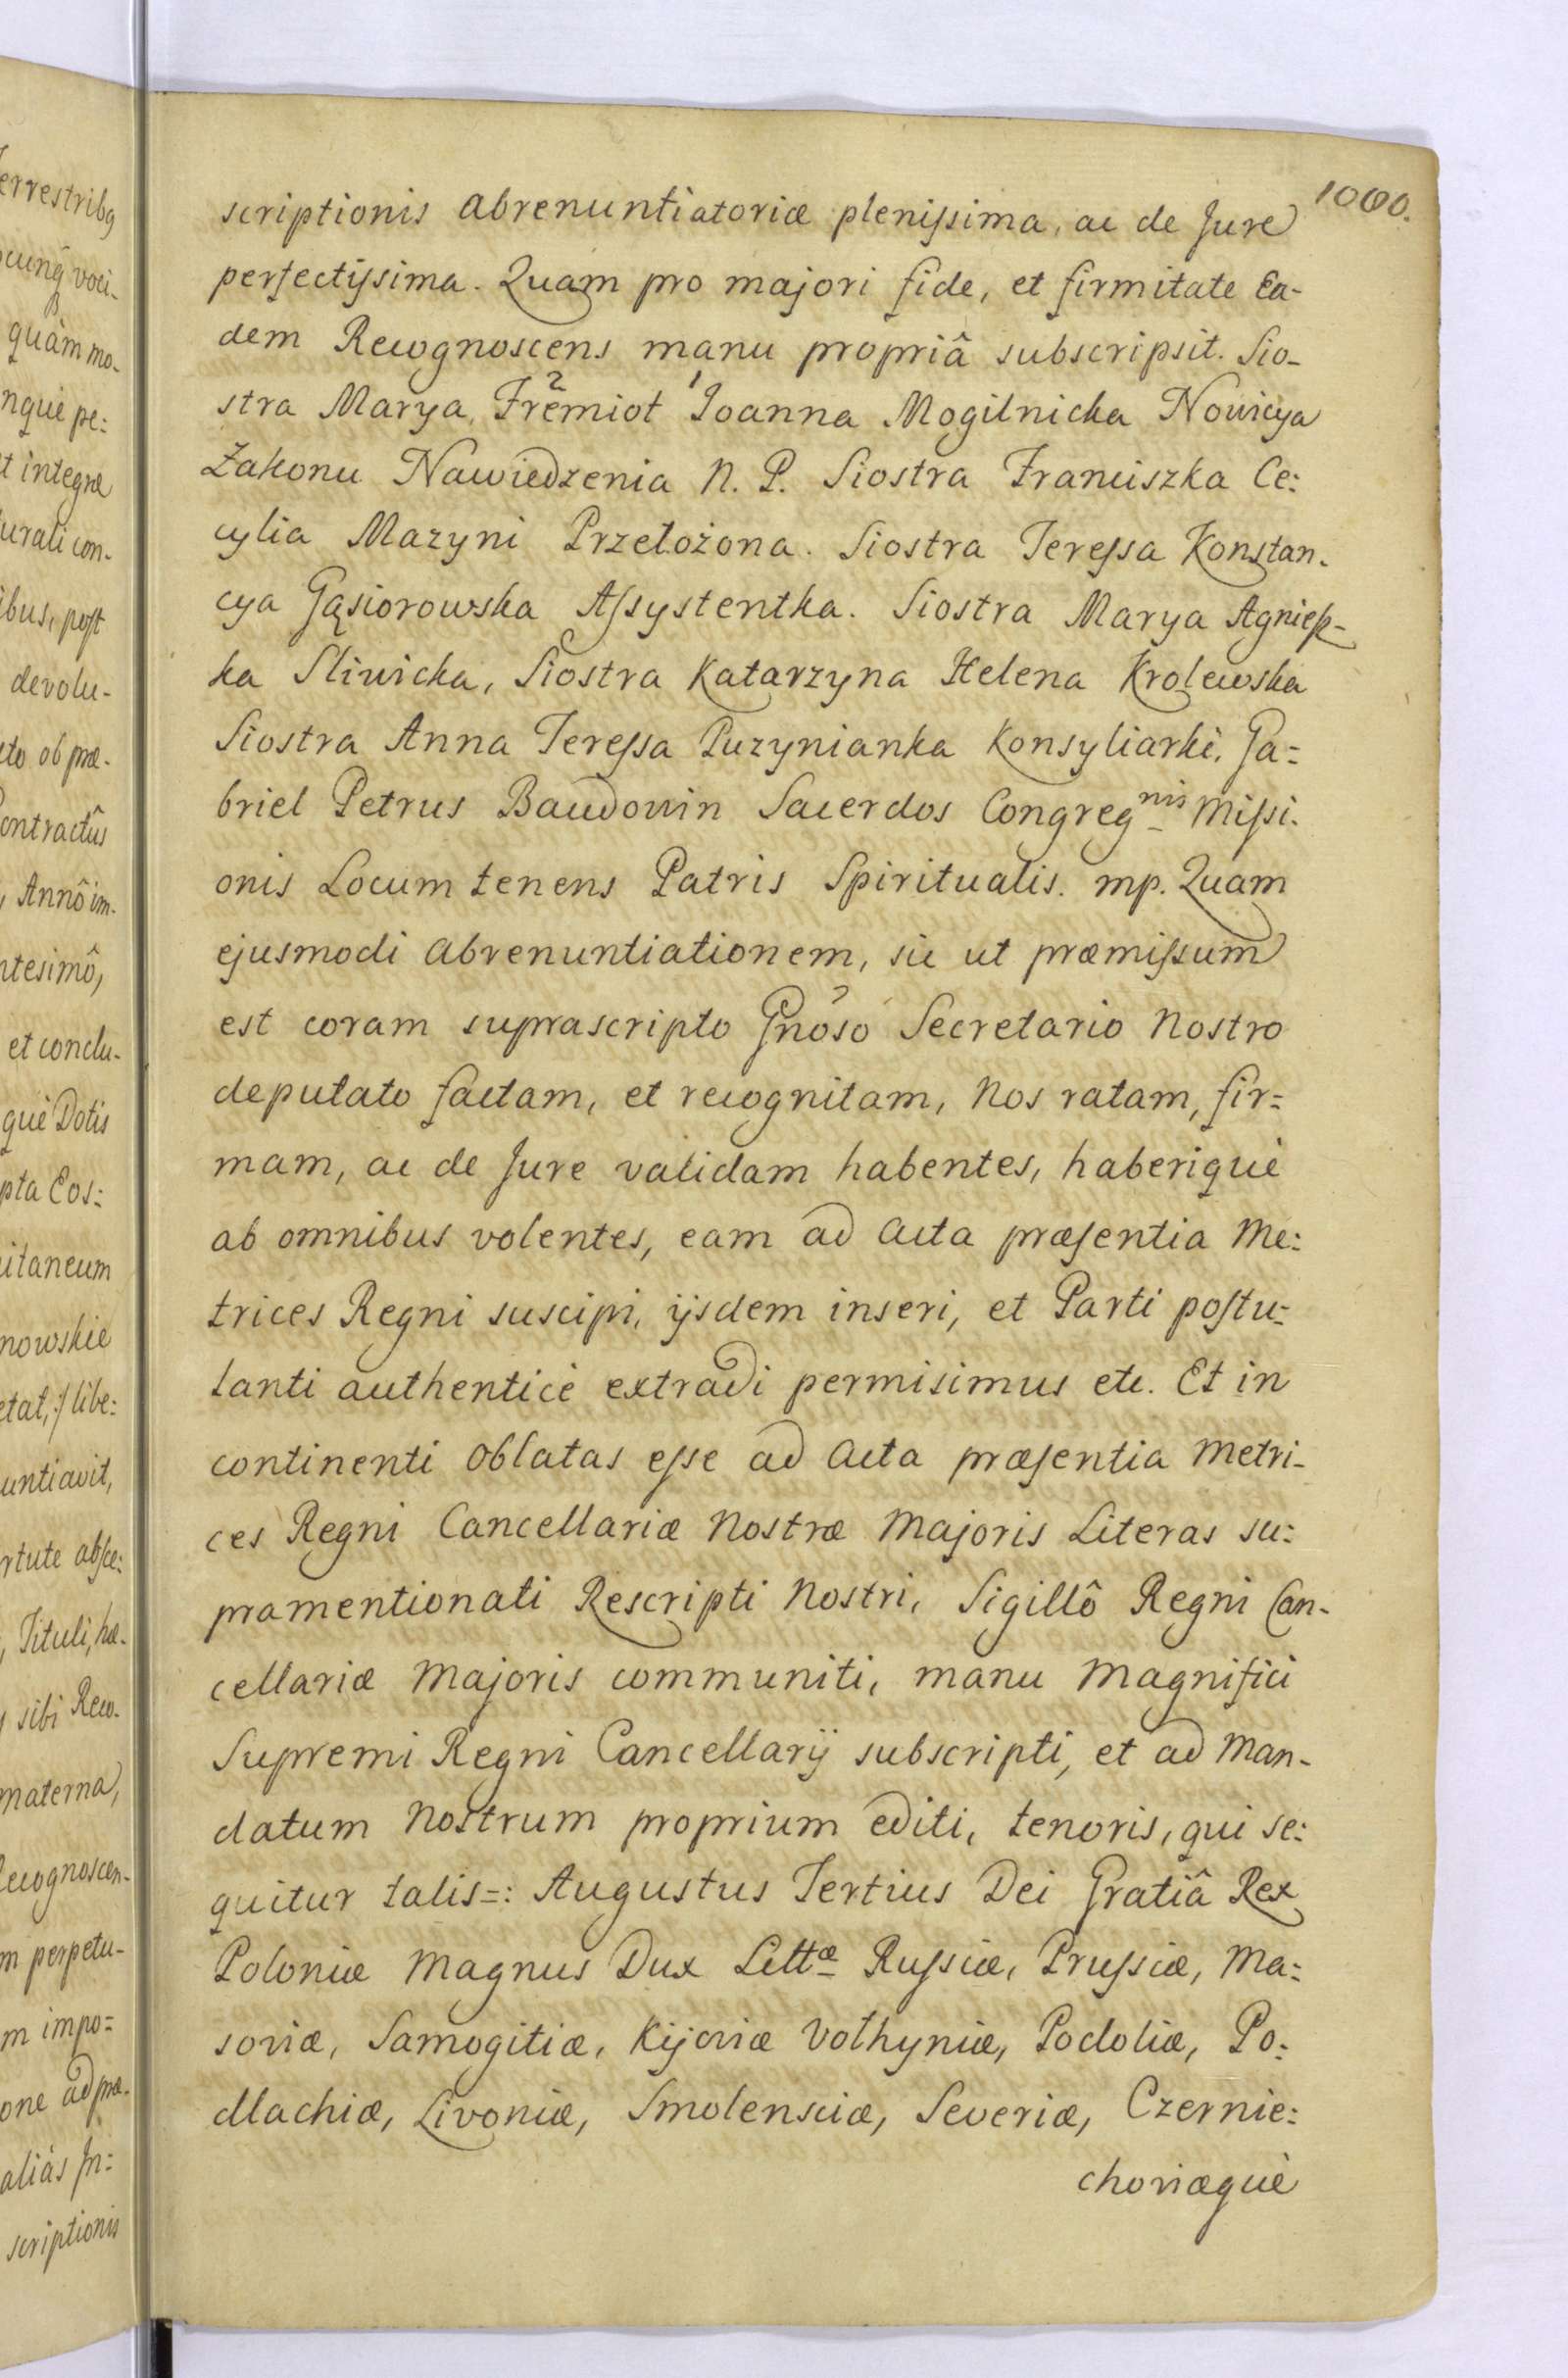 1000.
scriptionis abrenuntiatoriæ plenissima, ac de Jure
perfectissima. Quam pro majori fide, et firmitate Ea-
dem Recognoscens manu propriâ subscripsit. Sio-
stra Marya, Fremiot Joanna Mogilnicka Nowicya
Zakonu Nawiedzenia N. P. Siostra Franciszka Ce:
cylia Mazyni Przełożona. Siostra Teressa Konstan-
cya Gąsiorowska Assystentka. Siostra Marya Agniesz-
ka Sliwicka, Siostra Katarzyna Helena Krolewska
Siostra Anna Teressa Puzynianka Konsyliarki. Ga=
briel Petrus Baudouin Sacerdos Congregnis Missi-
onis Locum tenens Patris Spiritualis. mp. Quam
ejusmodi abrenuntiationem, sic ut præmissum
est coram suprascripto Gnoso Secretario Nostro
deputato factam, et recognitam, Nos ratam, fir=
mam, ac de Jure validam habentes, haberiquè
ab omnibus volentes, eam ad Acta præsentia Me:
trices Regni suscipi, ijsdem inseri, et Parti postu-
lanti authenticè extradi permisimus etc. Et in
continenti Oblatas esse ad Acta præsentia Metri-
ces Regni Cancellariæ Nostræ Majoris Literas su:
pramentionati Rescripti Nostri, Sigillô Regni Can-
cellariæ Majoris communiti, manu Magnifici
Supremi Regni Cancellarij subscripti, et ad Man-
datum Nostrum proprium editi, tenoris, qui se:
quitur talis=: Augustus Tertius Dei Gratiâ Rex
Poloniæ Magnus Dux Littæ Russiæ, Prussiæ, Ma=
soviæ, Samogitiæ, Kijoviæ Volhyniæ, Podoliæ, Po:
dlachiæ, Livoniæ, Smolensciæ, Severiæ, Czernie:
choviæquè